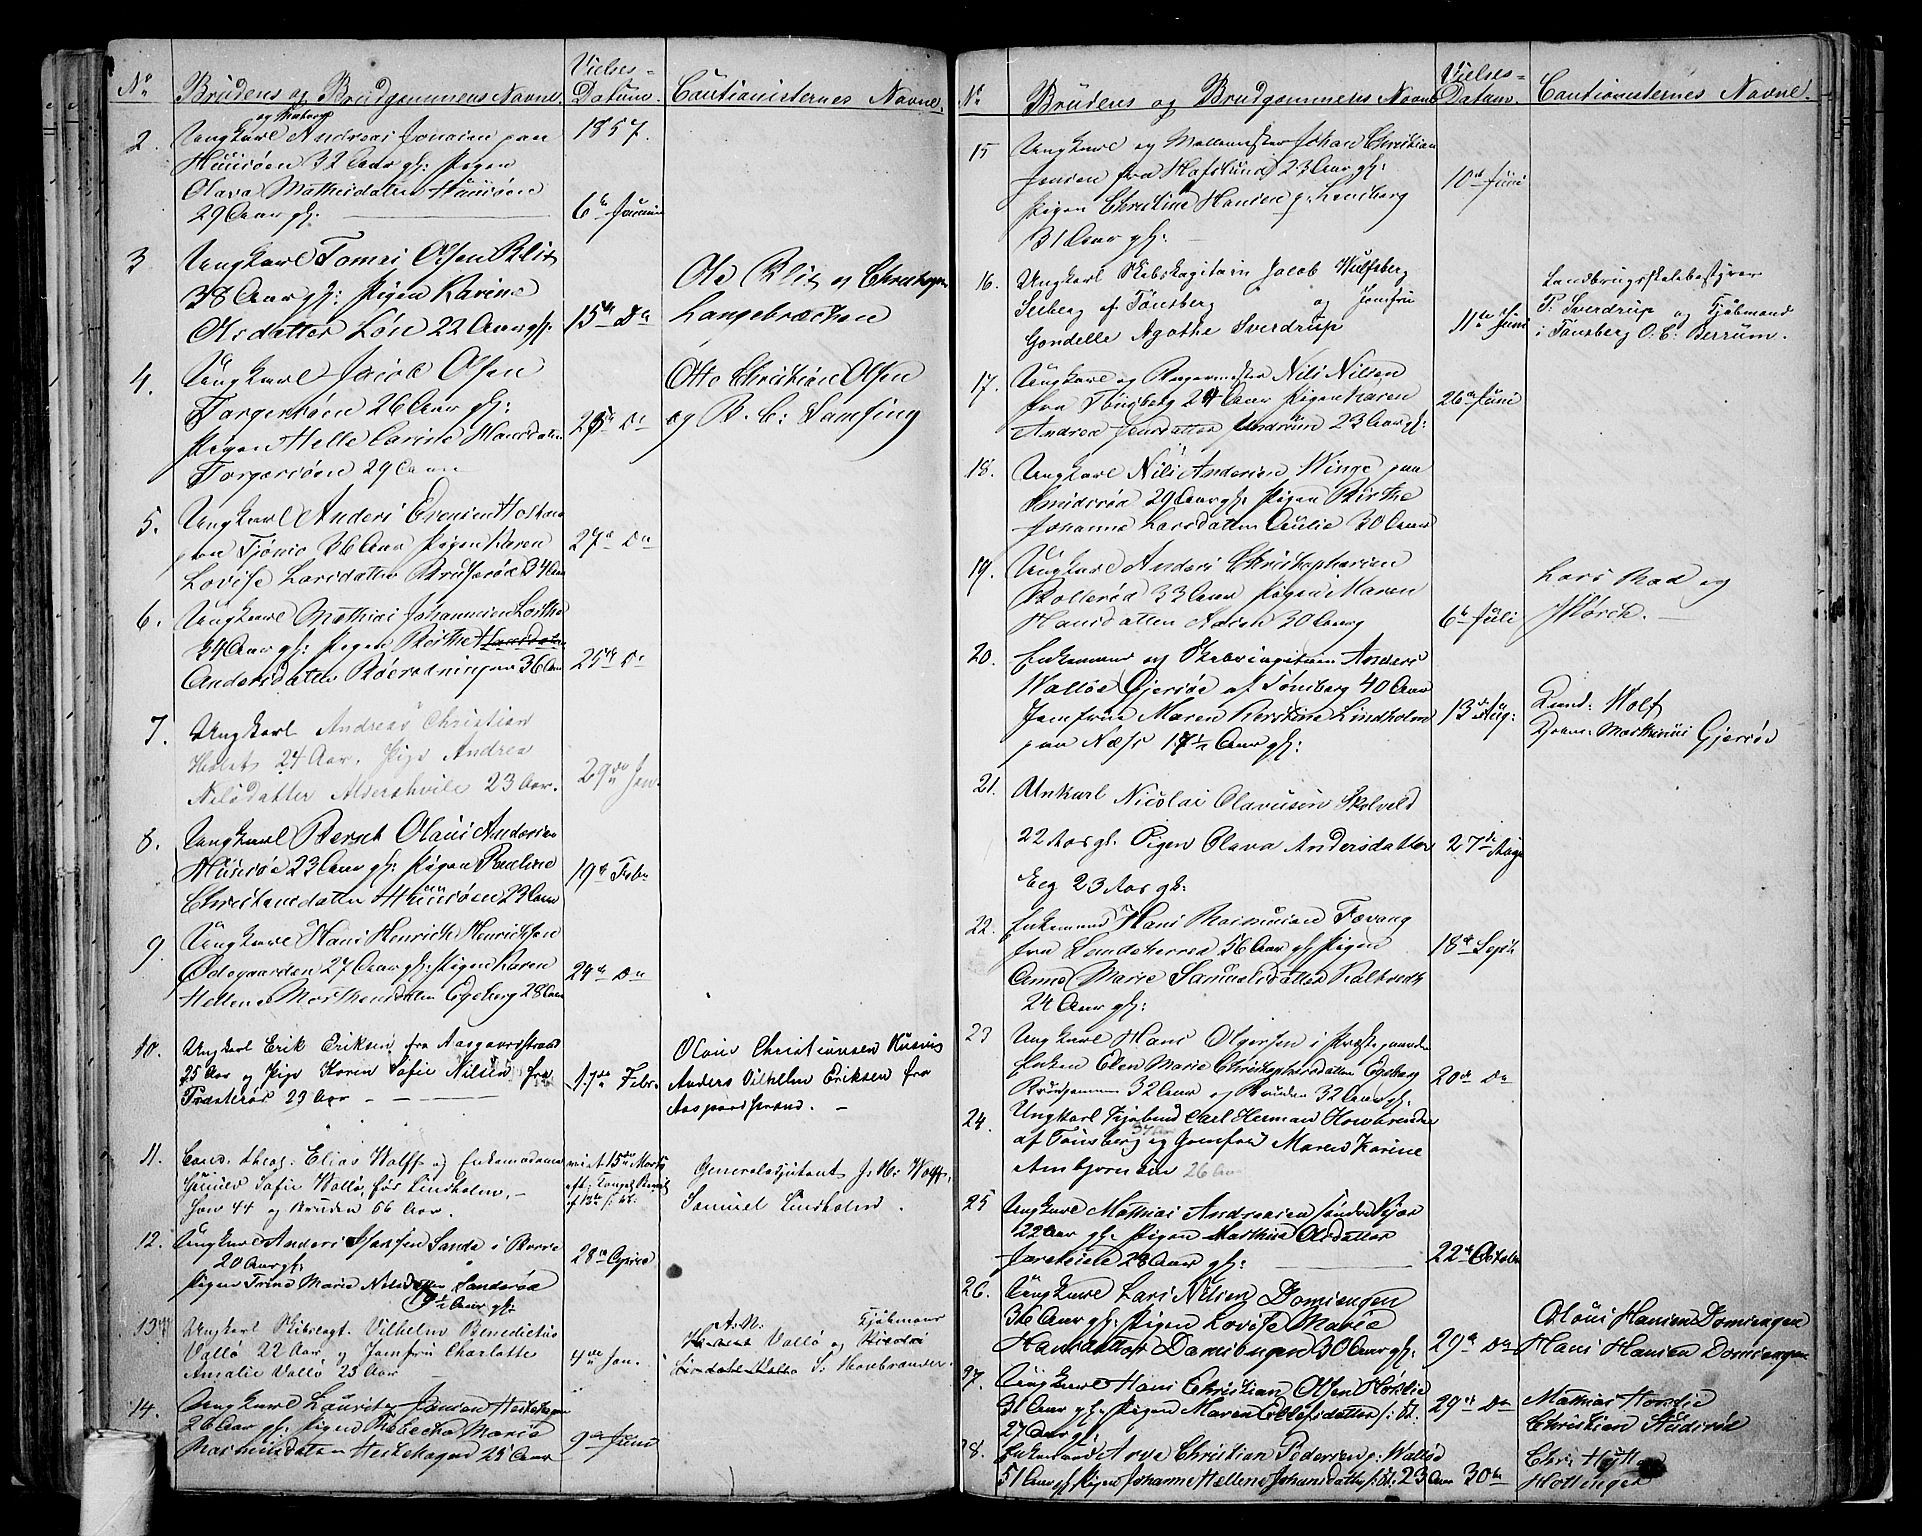 No Brudens og Brudgommens Navne Vielses-Datum. Cautionisternes Navne.
1857.
2. Ungkarl og Andreas Jonsen paa
Huusøen 32 Aar gl: Pigen
Olava Mathisdatter Huusøen
29 Aar gl. 6te Januar
3 Ungkarl Tomas Olsen Blix
38 Aar gl: Pigen Karine
Olsdatter Løn 22 Aar gl: 15de Do
Ole Blix og Christopher
Langebrække
4. Ungkarl Jacob Olsen
Torgersøen 26 Aar gl:
Pigen Helle Carine Hansdatter
Torgersøen 29 Aar 25de Do
Otto Christian Olsen
og B. C: Samsing
5. Ungkarl Anders Evensen
paa Tjømø 36 Aar Pigen Karen
Lovise Larsdatter Bruserød 34 Aar 27de Do
6. Ungkarl Mathias Johannesen
39 Aar gl: Pigen Berthe Hansdatter
Andersdatter 36 Aar 25de Do
7. Ungkarl Andreas Christian
24 Aar. Pige Andrea
Nilsdatter 23 Aar. 29de Jan.
8. Ungkarl Bernt Olaus Andersen
Huusøe 23 Aar gl: Pigen Pauline
Christensdatter Huusøen 23 Aar 19de Febr
9. Ungkarl Hans Henrich Henrichsen
Ødegaarden 27 Aar gl: Pigen Karen
Hellene Morthensdatter Egeberg 28 Aar 24de Do
10. Ungkarl Erik Eriksen fra Aasgaardstrand
25 Aar og Pige Karen Sofie Nilsen fra
Præsterød 23 Aar 17de Febr.
Olaus Christiansen Husvig
Anders Vilhelm Eriksen fra
Aasgaardstrand.
11. Cand. theol. Elias Wolff og Enkemadame
Sofie Wallø, før Lindholm.
Han 44 og Bruden 56 Aar. viet 15de Marts
Generaladjutant J. N: Wolff.
Samuel Lindholm.
12. Ungkarl Anders Sande i Borre
20 Aar gl:
Pigen Trine Marie Nilsdatter Sanderød
19½ Aar gl: 28de April
13. Ungkarl Skibscapt. Vilhelm Benedictus
Vallø 22 Aar og Jomfru Charlotte
Amalie Vallø 23 Aar 4de Jun.
A. N. Vallø og Kjøbmand
S. Hovbrender.
14. Ungkarl Lauritz Jansen
26 Aar gl. Pigen Rebecka Maria
Rasmusdatter 25 Aar 9de Juni
No Brudens og Brudgommens Navne Vielses-Datum. Cautionisternes Navne.
15 Ungkarl og Møllemester Johan Christian
Jensen fra Hafslund 23 Aar gl:
Pigen Christine Hansen p: Lensberg
31 Aar gl: 10de Juni
16. Ungkarl Skibskapitain Jacob Wulfsberg
Seeberg af Tønsberg og Jomfru
Gondelle Agathe Sverdrup 11te Juni
Landbrugsskolebestyrer
P: Sverdrup og Kjøbmand
i Tønsberg O. C: Berrum.
17. Ungkarl og Nils Nilsen
fra Tønsberg 24 Aar Pigen Karen
Andrea Jensdatter Undrum 23 Aar gl: 26de Juni
18. Ungkarl Nils Andersen Winge paa
29 Aar gl: Pigen Birthe
Johanne Larsdatter Aulie 30 Aar
19. Ungkarl Anders Christophersen
Rollerød 33 Aar Pigen Maren
Hansdatter 30 Aar 6te Juli
Lars Rød og
Mørch.
20. Enkemand og Skibscapitain Anders
Walløe Gjersøe af Tønsberg 40 Aar
Jomfrue Maren Kerstine Lindholm
paa Næss 17½ Aar gl: 13de Aug:
Wolf
Mathias Gjersøe
21. Unkarl Nicolai Olausen Skolvold
22 Aar gl. Pigen Olava Andersdatter
Eeg 23 Aar gl: 27de Aug
22. Enkemand Hans Rasmussen Fævang
fra Sandeherred 56 Aar gl Pigen
Anne Marie Samuelsdatter
24 Aar gl: 18de Septr
23 Ungkarl Hans Olgersen i Præstegaarden
Enken Elen Marie Christophersdatter Egeberg
Brudgommen 32 Aar og Bruden 32 Aar gl. 20de Do
24. Ungkarl Kjøbmd Carl Herman
34 Aar
af Tønsberg og Jomfru Maren Karine
Ambjørnsen 26 Aar
25 Ungkarl Mathias Andreasen
22 Aar gl: Pigen Mathia Olsdatter
Jareteien 28 Aar gl: 22de Octobr
26. Ungkarl Lars Nilsen Domsengen
36 Aar gl: Pigen Lovise Marie
Hansdatter Domsengen 30 Aar gl: 29de Do
Olaus Hansen Domsengen
Hans Hansen Domsengen
27. Ungkarl Hans Christian Olsen
31 Aar gl: Pigen Maren Ellefsdatter
27 Aar gl 29de Do
Mathias
Christian
28. Enkemand Arve Christian Pedersen p: Walløe
51 Aar gl Pigen Johanne Hellene Johansdatter 23 Aar 30te
Chr: